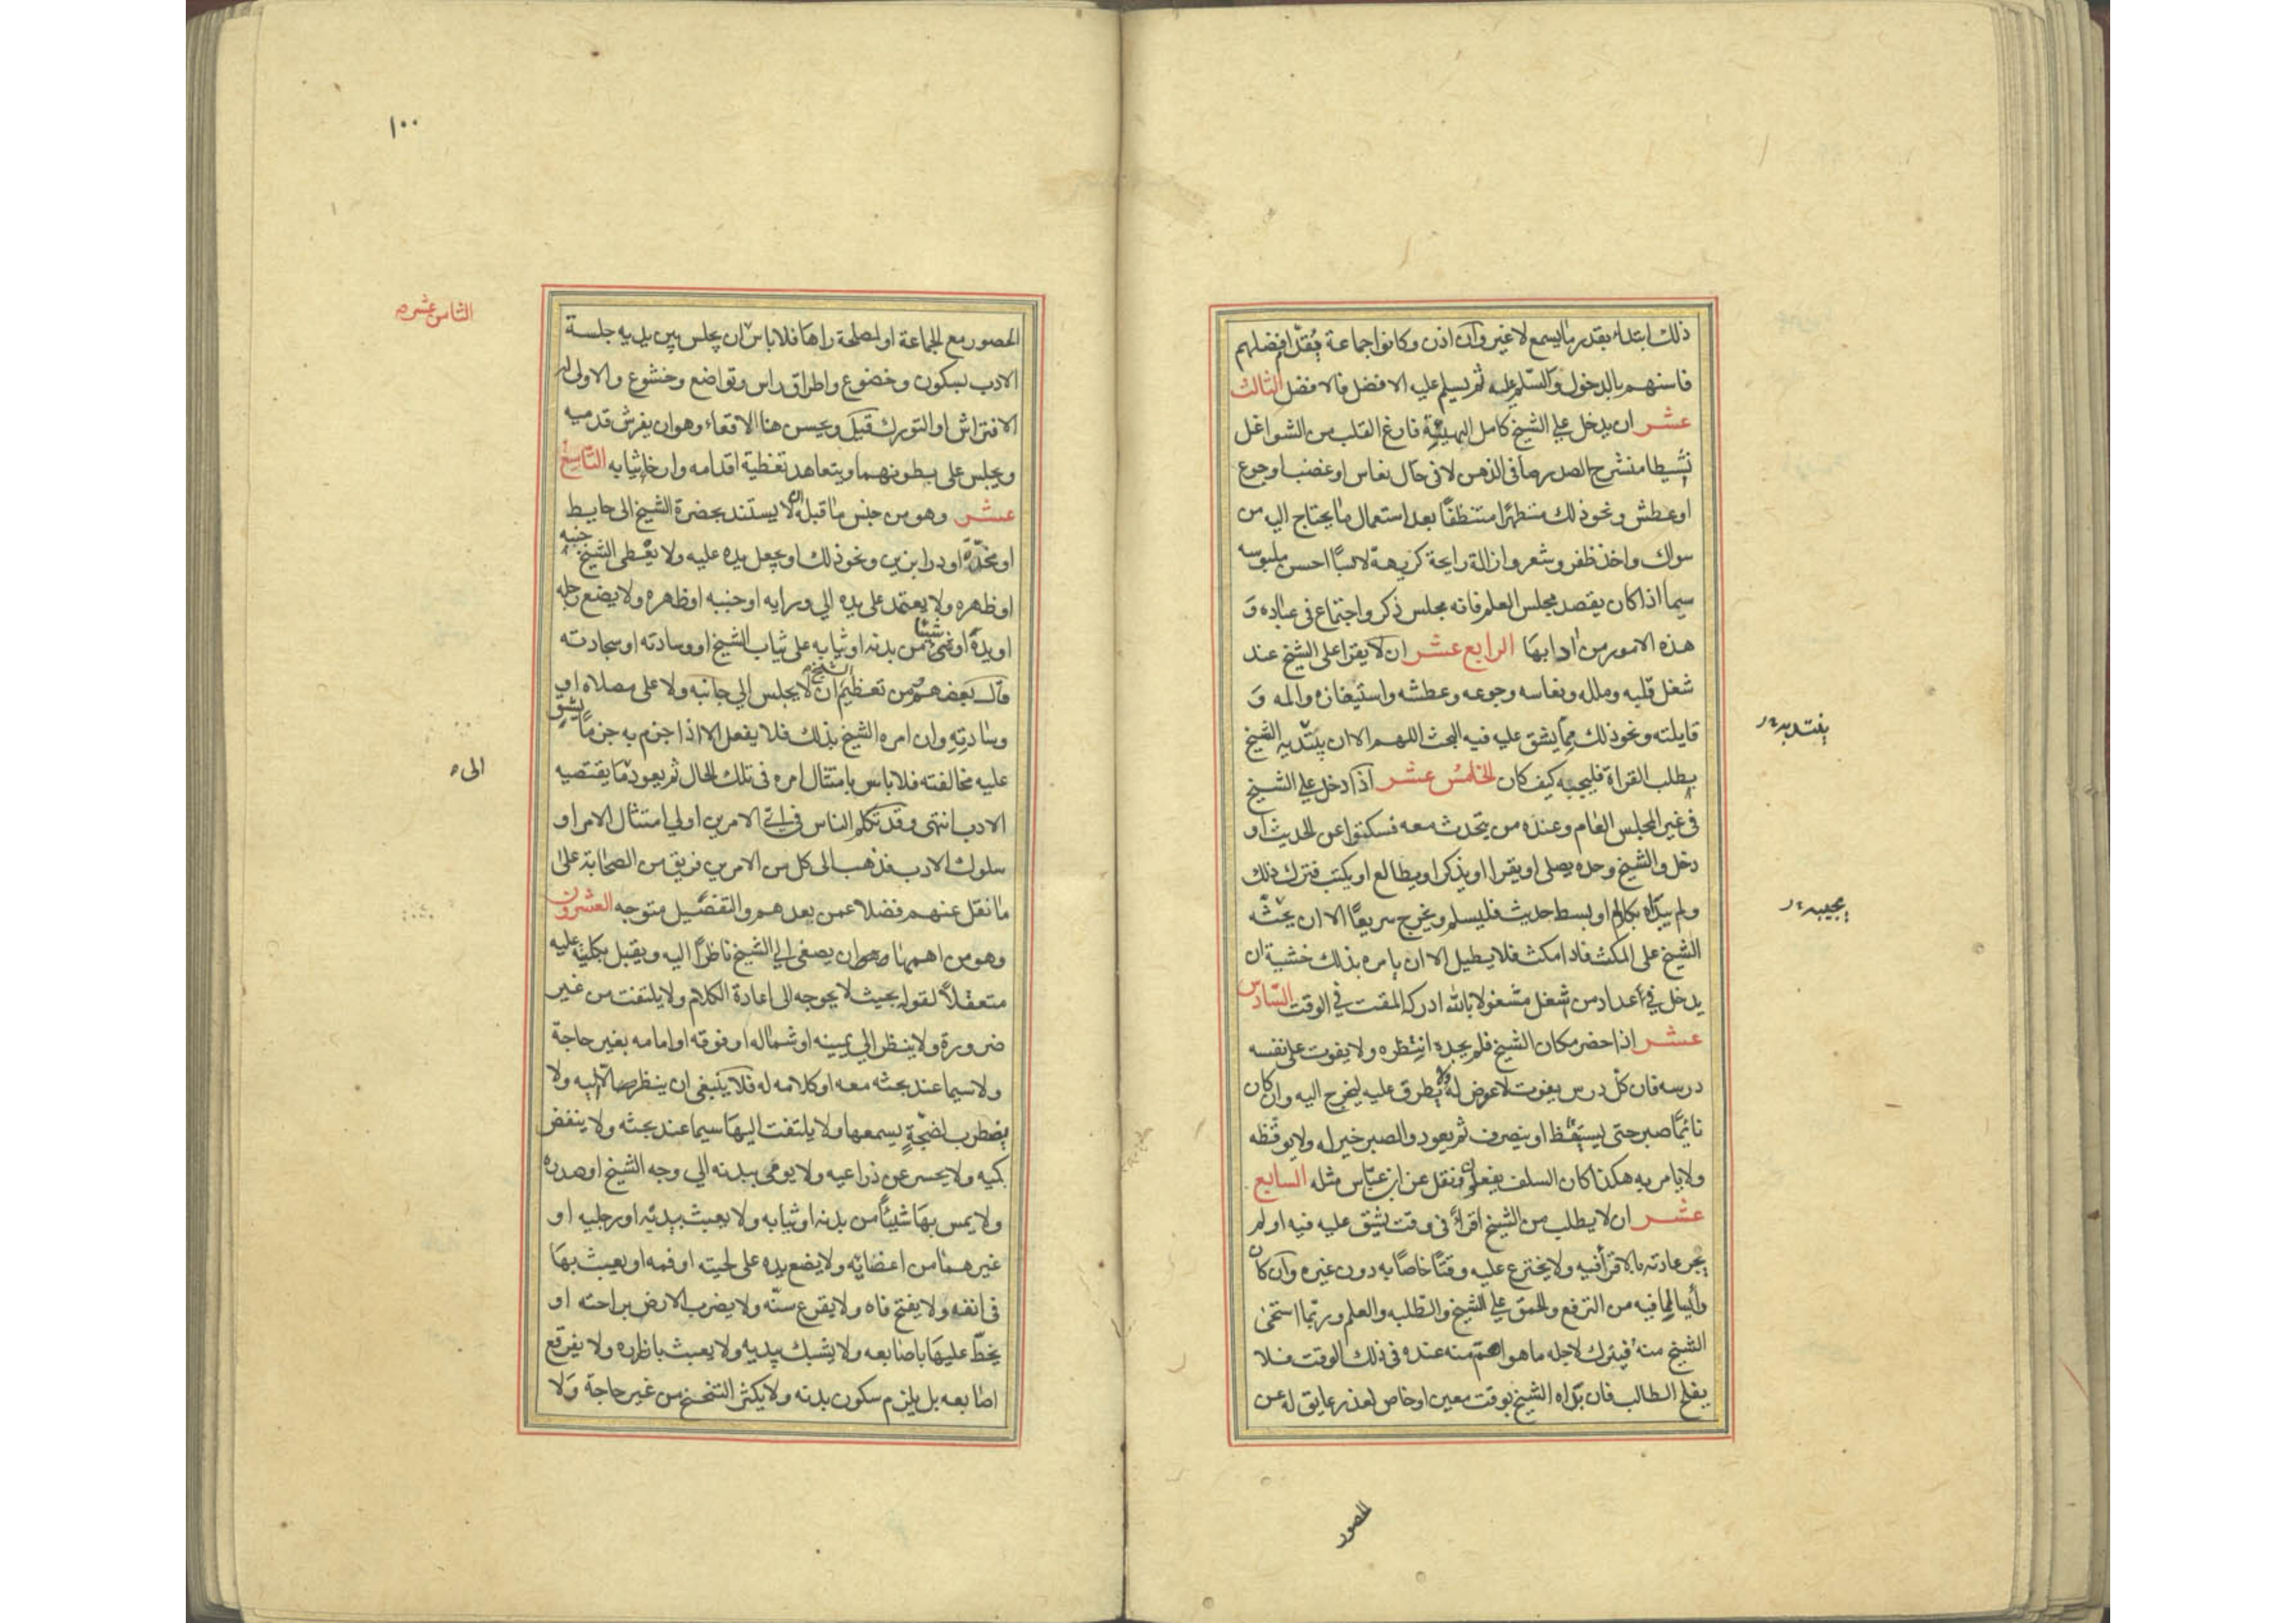 ذلك ابتداء بقدر ما يسمع لا غير وان اذن وكانوا جماعة يقدم افضلهم
فاسنهم بالدخول والسلم عليه ثم يسلم عليه الافضل فالافضل الثالث
عشر ان يدخل على الشيخ كامل الهيئة فارغ القلب من الشواغل
نشيطا منشرح الصدر صافى الذهن لا فى حال نعاس او غضب او جوع
او عطش ونحو ذلك متطهرا متنظفا بعد استعمال ما يحتاج اليه من
سواك واخذ ظفر وشعر وازالة رايحة كريهة لابسا احسن ملبوسه
سيما اذا كان يقصد مجلس العلم فانه مجلس ذكر واجتماع فى عباده و
هذه الامور من ادابها الرابع عشر ان لا يقرا على الشيخ عند
شغل قلبه وملله ونعاسه وجوعه وعطشه واستيفازه والمه و
قايلته ونحو ذلك مما يشق عليه فيه البحث اللهم الا ان يبتديه الشيخ
يفتديه
بطلب القراة فليجبه كيف كان الخامس عشر اذا دخل على الشيخ
فى غير المجلس العام وعنده من يتحدث معه فسكتوا عن الحديث او
دخل والشيخ وحده يصلى او يقرا او يذكر او يطالع او يكتب فترك ذلك
ولم يبداه بكلام او بسط حديث فليسلم ويخرج سريعا الا ان يحثه
يجيبه
الشيخ على المكث فاذا مكث فلا يطيل الا ان يامره بذلك خشية ان
يدخل فى اعداد من شغل مشغولا بالله ادركه المقت فى الوقت السادس
عشر اذا حضر مكان الشيخ فلم يجده انتظره ولا يفوت على نفسه
درسه فان كل درس يفوت لا عوض له ولا يطرق عليه ليخرج اليه وان كان
نائما صبر حتى يستيقظ او ينصرف ثم يعود والصبر خير له ولا يوقظه
ولا يامر به هكذا كان السلف يفعلون ونقل عن ابن عباس مثله السابع
عشر ان لا يطلب من الشيخ اقراء فى وقت يشق عليه فيه او لم
يجر عادته بالاقرا فيه ولا يخترع عليه وقتا خاصا به دون غيره وان كان
رأيسا لما فيه من الترفع والحمق على الشيخ والطلبه والعلم وربما استحى
الشيخ منه فيترك لاجله ما هو اهم منه عنده فى ذلك الوقت فلا
يفلح الطالب فان بداه الشيخ بوقت معين او خاص لعذر عايق له عن
الحضور
١٠٠
الثامن عشر
الحضور مع الجماعة او لمصلحة راها فلا باس ان يجلس بين يديه جلسة
الادب بسكون وخضوع واطراق راس وتواضع وخشوع والاولى له
الافتراش او التورك قيل ويحسن هنا الاقعاء وهو ان يفرش قدميه
ويجلس على بطونهما ويتعاهد تغطية اقدامه وارخا ثيابه التاسع
عشر وهو من جنس ما قبله ان لا يستند بحضرة الشيخ الى حايط
او مخدة او درابزين ونحو ذلك او يجعل يده عليه ولا يعطى الشيخ جنبه
او ظهره ولا يعتمد على يده الى ورايه او جنبه او ظهره ولا يضع رجله
او يده او شيئا من بدنه او ثيابه على ثياب الشيخ او وسادته او سجادته
قال بعضهم من تعظيم الشيخ ان لا يجلس الى جانبه ولا على مصلاه او
وسادته وان امره الشيخ بذلك فلا يفعل الا اذا جزم به جزما يشق
عليه مخالفته فلا باس بامتثال امره فى تلك الحال ثم يعود ما يقتضيه
الى
الادب انتهى وقد تكلم الناس فى اى الامرين اولى امتثال الامر او
سلوك الادب فذهب الى كل من الامرين فريق من الصحابة على
ما نقل عنهم فضلا عمن بعدهم والتفضيل متوجه العشرون
وهو من اهمها وهو ان يصغى الى الشيخ ناظرا اليه ويقبل بكليته عليه
متعقلا لقوله بحيث لا يحوجه الى اعادة الكلام ولا يلتفت من غير
ضرورة ولا ينظر الى يمينه او شماله او فوقه او امامه بغير حاجة
ولا سيما عند بحثه معه او كلامه له فلا ينبغى ان ينظر الا اليه ولا
يضطرب لضجة يسمعها ولا يلتفت اليها سيما عند بحثه ولا ينفض
كميه ولا يحسر عن ذراعيه ولا يومى بيدنه الى وجه الشيخ او صدره
ولا يمس بها شيئا من بدنه او ثيابه ولا يعبث بيديه او رجليه او
غيرهما من اعضائه ولا يضع يده على لحيته او فمه او يعبث بها
فى انفه ولا يفتح فاه ولا يقرع سنه ولا يضرب الارض براحته او
يخط عليها باصابعه ولا يشبك بيديه ولا يعبث بازراره ولا يفرقع
اصابعه بل يلزم سكون بدنه ولا يكثر التنحنح من غير حاجة ولا